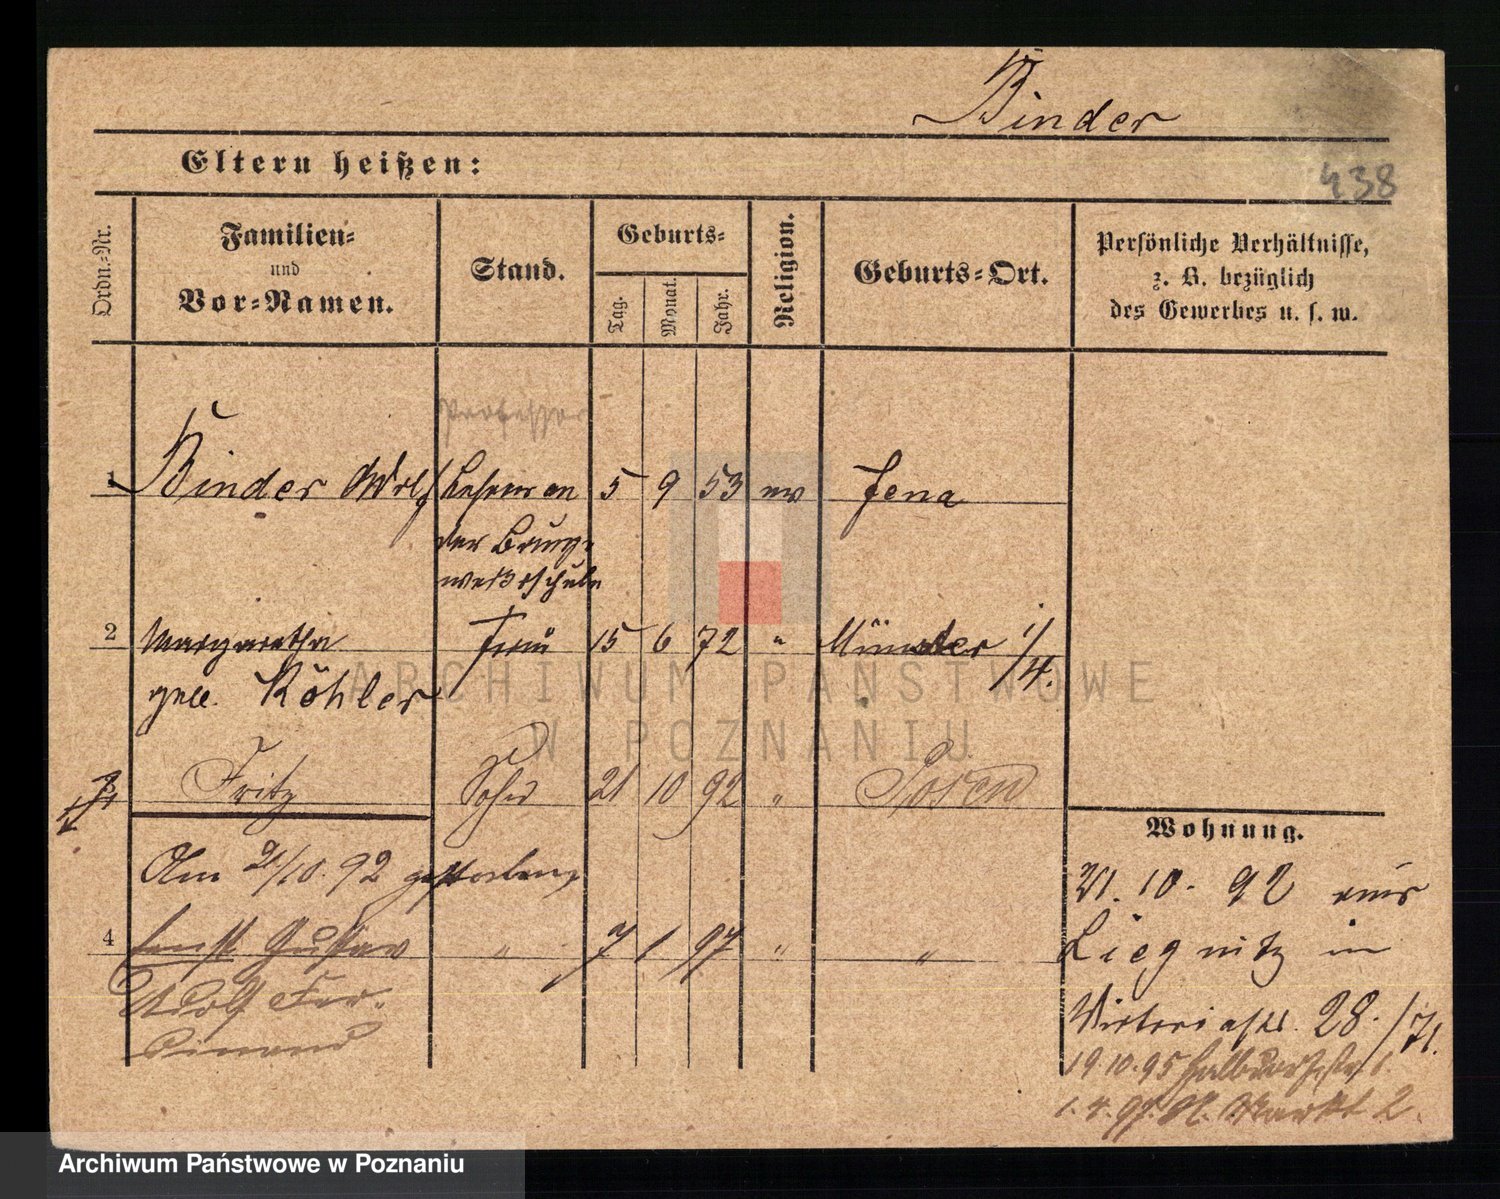 Binder
Eltern heißen:
438
Ordn.-Nr.
Familien-
und
Vor-Namen.
Stand.
Geburts-
Tag.
Monat.
Jahr.
Religion.
Geburts-Ort.
Persönliche Verhältnisse,
z. B. bezüglich
des Gewerbes u. s. w.
Professor
1 Binder Adolf Lehrer an 5 9 53 ev Jena
der Baugewerkschule
2 Margarethe Frau 15 6 72 " Münster 1/4.
geb. Köhler
3 Fritz Sohn 21 10 92 " Posen
Am 21/10. 92 gestorben
4 Ernst Gustav " 7 1 97 " "
Adolf Fer-
dinand
Wohnung.
21. 10. 92 aus
Liegnitz in
Victoriastr. 28. /71.
19.10.95 Halbdorfstr.
1.4.97. Markt 2.
ARCHIWUM PAŃSTWOWE
W POZNANIU
Archiwum Państwowe w Poznaniu